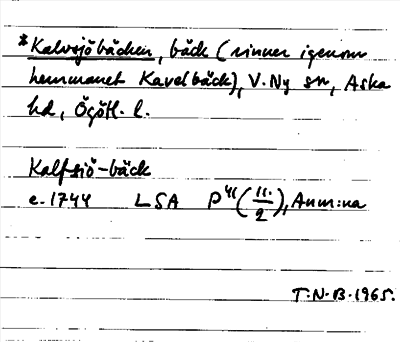 *Kalvsjöbäcken, bäck (rinner igenom
hemmanet Kavelbäck), V. Ny sn, Aska
hd, Ögötl. l.
Kalfsiö-bäck
e. 1744 LSA P 41 (11:/2), Anm:na
T.N.B. 1965.